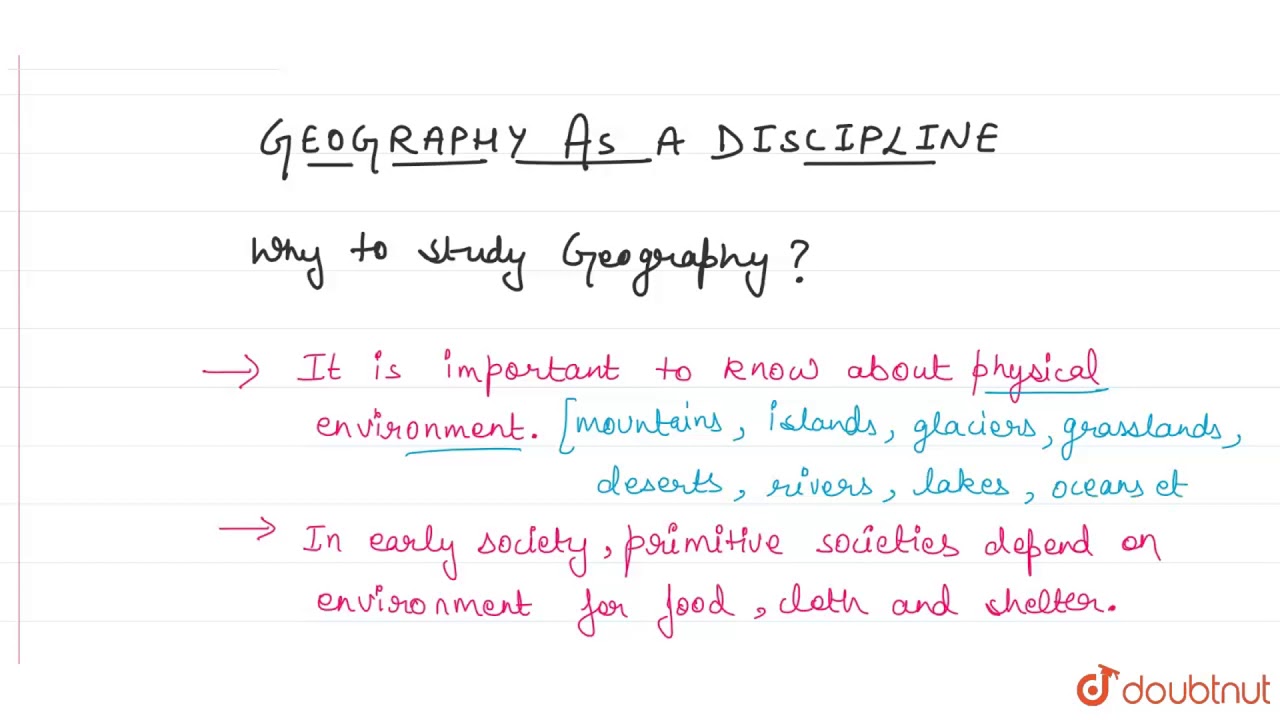 GEOGRAPHY As A DISCIPLINE
Why to study Geography?
→ It is important to know about physical
environment. [mountains, islands, glaciers, grasslands,
deserts, rivers, lakes, oceans et
→ In early society, primitive societies depend on
environment for food, cloth and shelter.
doubtnut